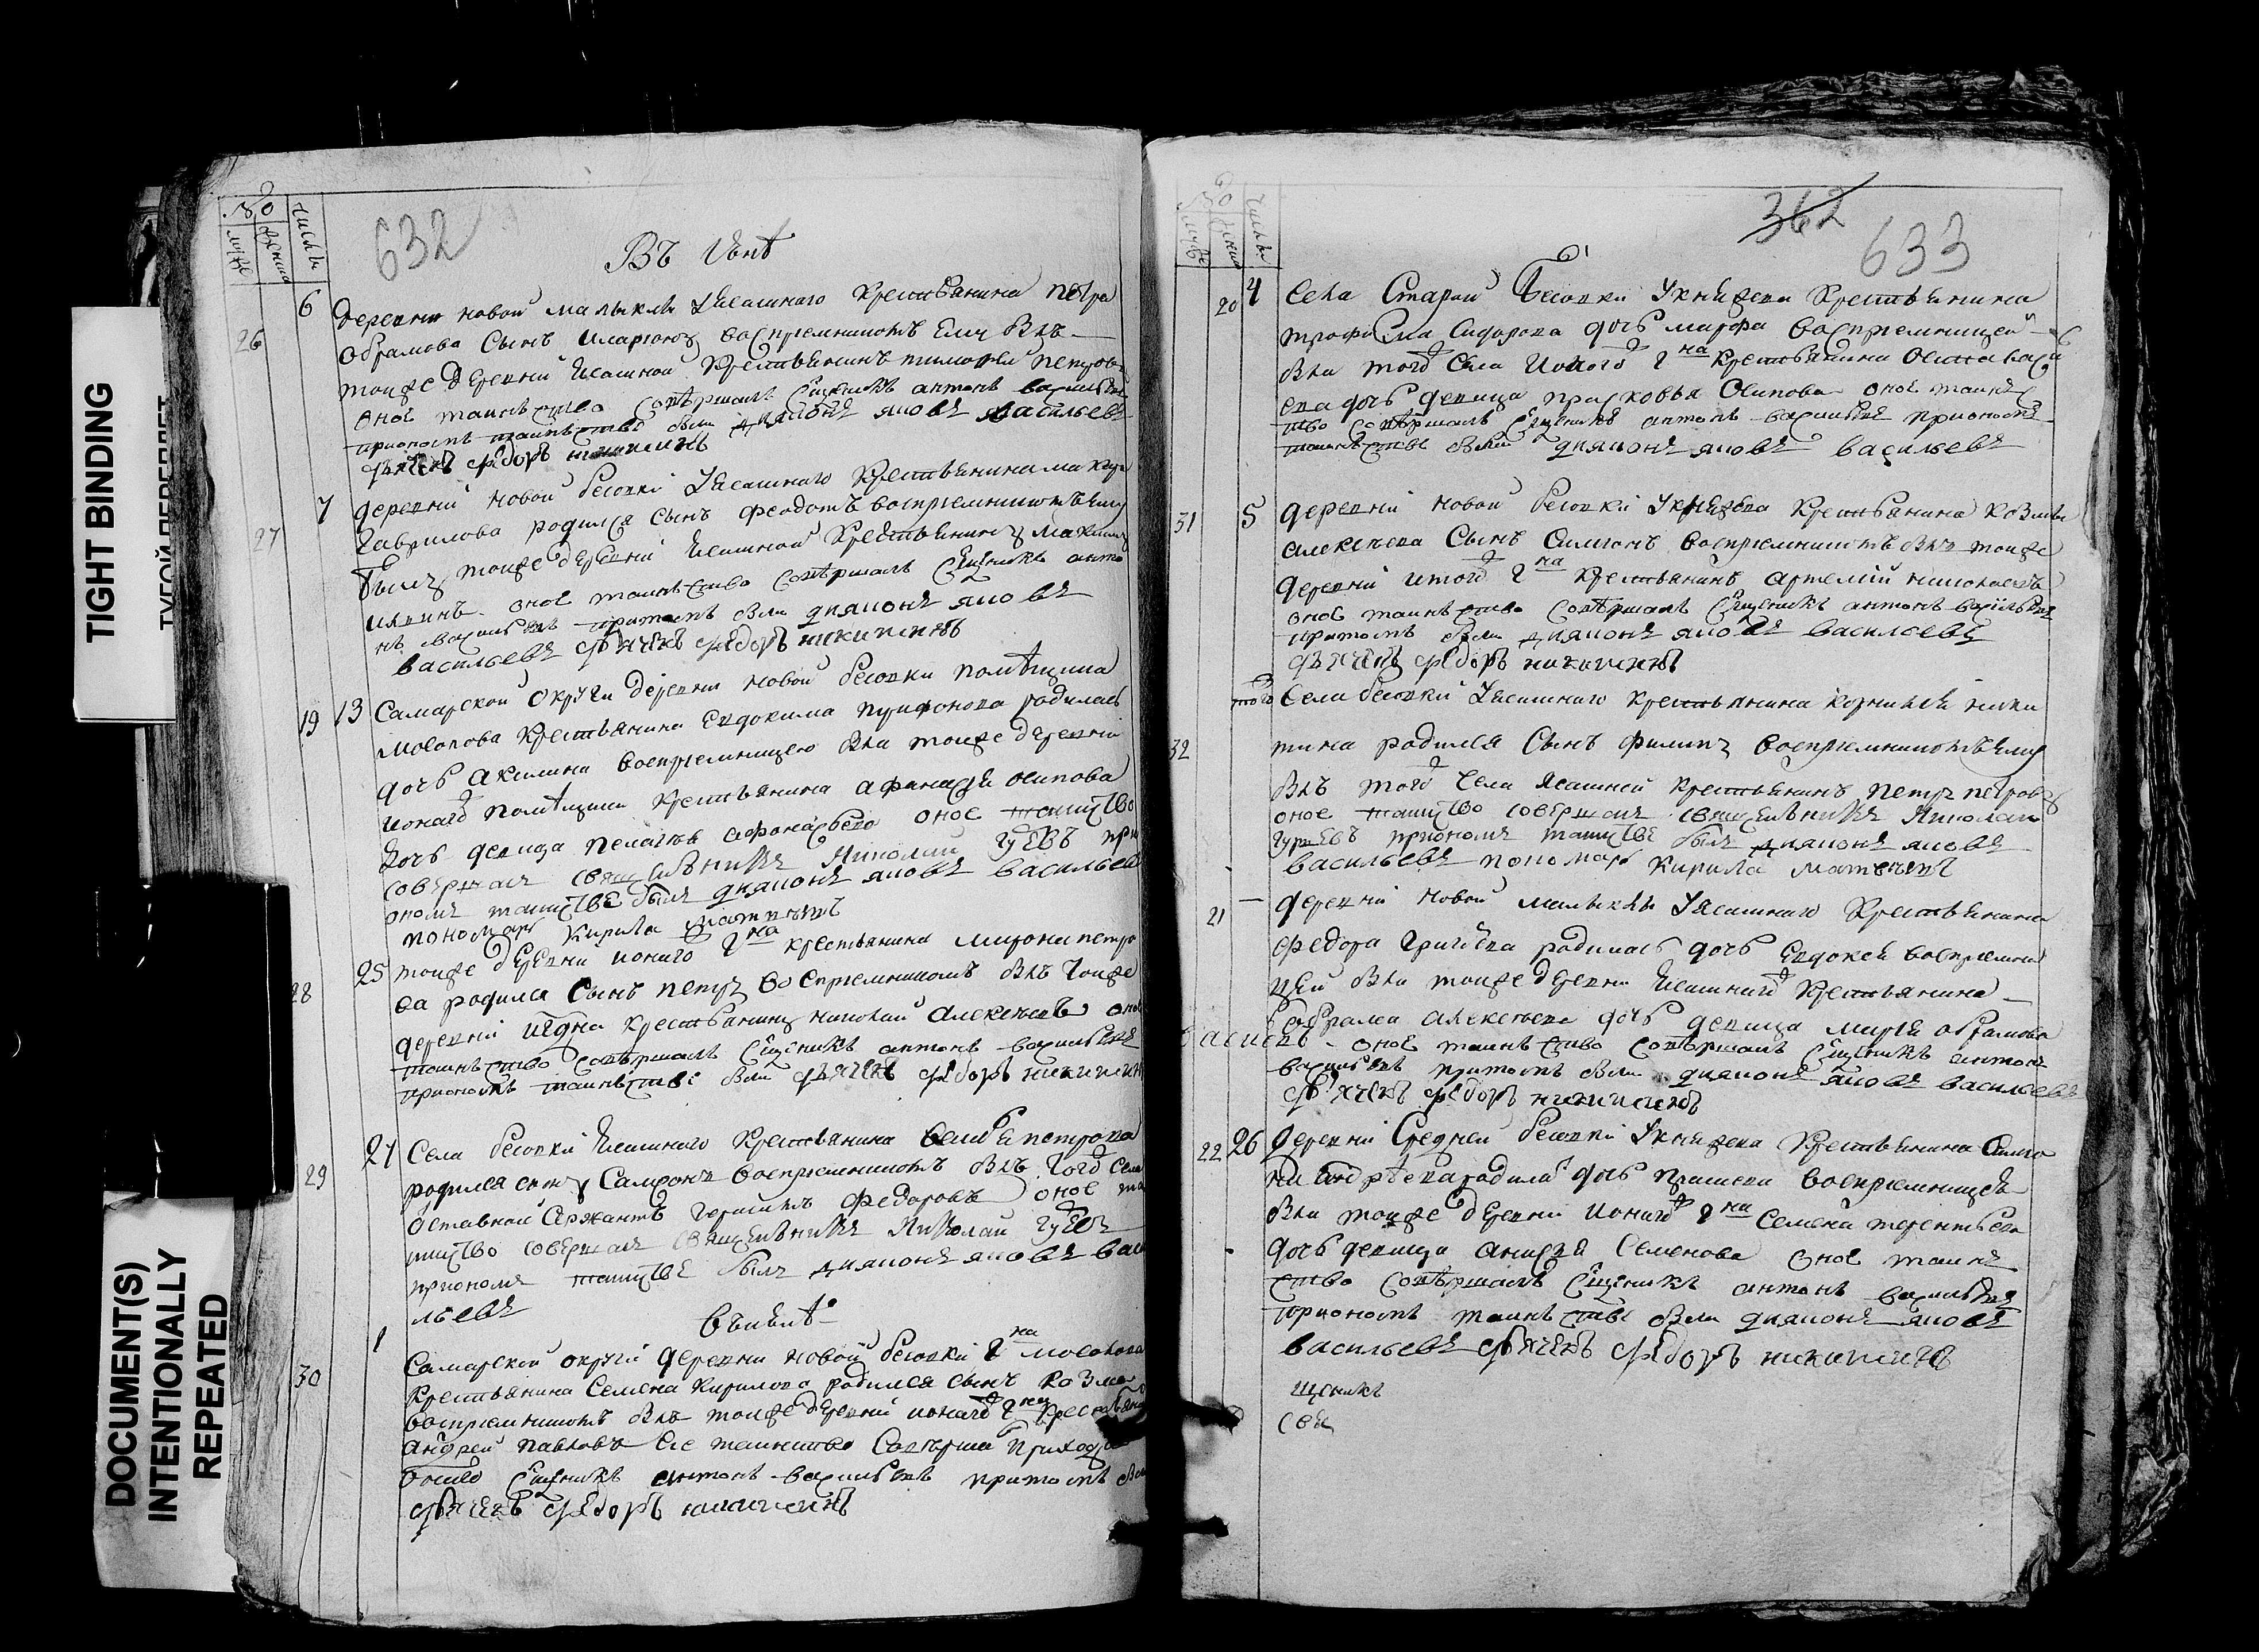 TIGHT BINDING
ТУГОЙ ПЕРЕПЛЕТ
DOCUMENT(S)
INTENTIONALLY
REPEATED
632
Въ Июнѣ
26
6
деревни новой малыклы Уясашнаго крестьянина петра
абрамова сынъ иларионъ воспрiемникомъ ему былъ
тоиже деревни ясашной крестьянинъ тимофей петровъ
оное таинство совершалъ сщенникъ антонъ васильевъ
приономъ таинстве были дияконъ яковъ васильевъ
дьячекъ федоръ никитинъ
27
7
деревни новой бесовки Уясашного крестьянина
гаврилова родился сынъ феодотъ воспрiемникомъ ему
былъ тоиже деревни ясашной крестьянинъ
оное таинство совершалъ сщенникъ анто
нъ васильевъ притомъ были дияконъ яковъ
васильевъ дьячекъ федоръ никитинъ
19
13
Самарской округи деревни новой бесовки помѣщика
мосолова крестьянина Евдокима родилась
дочь акилина воспрiемницею была тоиже деревни
помѣщика крестьянина афанасья осипова
дочь девица пелагея афонасьева оное таинство
совершалъ священникъ Николаи гуревъ при
ономъ таинстве былъ дияконъ яковъ васильевъ
пономарь кирила матвеевъ
28
25
тоиже деревни оного гна крестьянина мирона петро
ва родился сынъ петръ воспрiемникомъ былъ тоиже
деревни крестьянинъ николай алексеевъ оное
таинство совершалъ сщенникъ антонъ васильевъ
приономъ таинстве были дьячекъ федоръ никитинъ
29
27
Села бесовки ясашного крестьянина петрова
родился сынъ Самсонъ воспрiемникомъ былъ того села
отставной сержантъ федоровъ оное та
инство совершалъ священникъ Николаи гуревъ
приономъ таинстве былъ дияконъ яковъ васи
льевъ
Въ июлѣ
30
1
Самарской округи деревни новой бесовки гна мосолова
крестьянина Семена кирилова родился сынъ козма
воспрiемникомъ былъ тоиже деревни онаго гна крестьянин
андрей павловъ Сие таинство совершилъ приход
сщенникъ антонъ васильевъ притомъ были
дьячекъ федоръ никитинъ
362
633
20
4
Села Старой Бесовки Укнязева крестьянина
трофима Сидорова дочь марфа воспрiемницей
была того села оного гна крестьянина осипа васи
ева дочь девица прасковья осипова оное таин
ство совершалъ сщенникъ антонъ васильевъ приономъ
таинстве были дияконъ яковъ васильевъ
31
5
деревни новой бесовки Укнязева крестьянина козмы
алексеева сынъ Симионъ воспрiемникомъ былъ тоиже
деревни итого гна крестьянинъ артемий николаевъ
оное таинство совершалъ сщенникъ антонъ васильевъ
притомъ были дияконъ яковъ васильевъ
дьячекъ федоръ никитинъ
32
того
Села бесовки Уясашнаго крестьянина корнилы ники
тина родился сынъ филипъ воспрiемникомъ ему
былъ того села ясашней крестьянинъ петръ петровъ
оное таинство совершалъ священникъ Николаи
гуревъ приономъ таинстве былъ дияконъ яковъ
васильевъ пономарь кирила матвеевъ
21
деревни новой малыклы Уясашнаго крестьянина
федора григорева родилась дочь Евдокея воспрiемни
цей была тоиже деревни ясашнаго крестьянина
абрама алексеева дочь девица марья абрамова
оное таинство совершалъ сщенникъ антонъ
васильевъ притомъ были дияконъ яковъ васильевъ
дьячекъ федоръ никитинъ
22
26
деревни Средней бесовки Укнязева крестьянина
андреева родила дочь воспрiемницею
была тоиже деревни онаго гна Семена терентьева
дочь девица анисья Семенова оное таин
ство совершалъ сщенникъ антонъ васильевъ
приономъ таинстве были дияконъ яковъ
васильевъ дьячекъ федоръ никитинъ
щеникъ